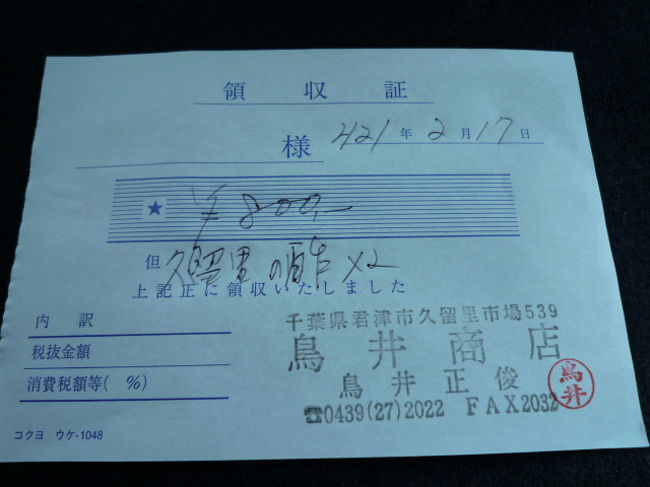 領収証
様 H21年2月17日
★ ¥800,-
但 久留里の ×2
上記正に領収いたしました
内訳
税抜金額
消費税額等( %)
コクヨ ウケ-1048
千葉県君津市久留里市場539
鳥井商店
鳥井正俊
鳥井
☎0439(27)2022 FAX2032